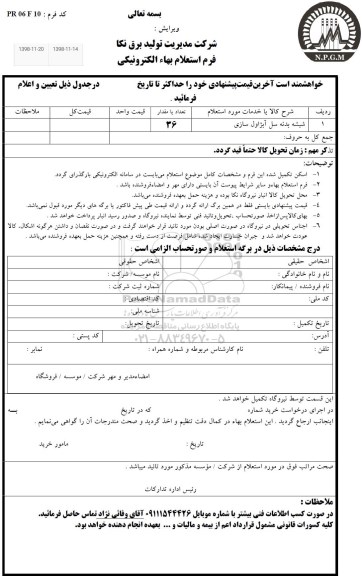 کد فرم : PR 06 F 10
بسمه تعالی
ویرایش :
شرکت مدیریت تولید برق نکا
فرم استعلام بهاء الکترونیکی
1398-11-20
1398-11-14
N.P.G.M
خواهشمند است آخرین قیمت پیشنهادی خود را حداکثر تا تاریخ درجدول ذیل تعیین و اعلام
فرمائید .
ردیف شرح کالا یا خدمات مورد استعلام تعداد یا مقدار قیمت واحد قیمت کل ملاحظات
۱ شیشه بدنه سل آبژاول سازی ۳۶
جمع کل به حروف:
تذکر مهم : زمان تحویل کالا حتماً قید گردد.
توضیحات:
۱- اسکن تکمیل شده این فرم و مشخصات کامل موضوع استعلام می‌بایست در سامانه الکترونیکی بارگذاری گردد.
۲- فرم استعلام بهاءو سایر شرایط پیوست آن بایستی دارای مهر و امضاءفروشنده باشد .
۳- محل تحویل کالا انبار نیروگاه نکا بوده، و هزینه حمل بعهده فروشنده می‌باشد.
۴- قیمت پیشنهادی بایستی فقط در همین برگه ارائه گردد و ارائه قیمت طی پیش فاکتور یا برگه های دیگر مورد قبول نمی‌باشد.
۵- بهای کالاپس ازاخذ صورتحساب ،تحویل وتائید فنی توسط نماینده نیروگاه و صدور رسید انبار پرداخت خواهد شد .
۶- اجناس تحویلی در نیروگاه در صورت اصلی بودن مورد تائید قرار خواهند گرفت و در صورت نقصان و داشتن هرگونه اشکال، کالا
عودت خواهد شد و جبران خسارت ایجاد شده شامل فرصت از دست رفته و همچنین هزینه حمل بعهده فروشنده می‌باشد .
درج مشخصات ذیل در برگه استعلام و صورتحساب الزامی است :
اشخاص حقیقی اشخاص حقوقی
نام و نام خانوادگی : نام موسسه/ شرکت :
نام فروشنده / پیمانکار: شماره ثبت شرکت :
کد ملی: کد اقتصادی:
شناسه ملی:
تاریخ تکمیل : تاریخ تحویل:
آدرس: کد پستی :
تلفن : نام کارشناس مربوطه و شماره همراه : نمابر :
۰۲۱-۸۸۳۴۹۶۷۰-۵
امضاءمدیر و مهر شرکت / موسسه / فروشگاه
این قسمت توسط نیروگاه تکمیل خواهد شد .
در اجرای درخواست خرید شماره که در تاریخ بسه
اینجانب ارجاع گردید . این استعلام بهاء در کمال دقت تنظیم و اخذ گردید و صحت مندرجات آن را گواهی می‌نمایم .
تاریخ : مامور خرید
صحت مراتب فوق در مورد استعلام از شرکت / مؤسسه مذکور مورد تائید میباشد .
رئیس اداره تدارکات
ملاحظات :
در صورت کسب اطلاعات فنی بیشتر با شماره موبایل ۰۹۱۱۱۵۴۴۴۲۶ آقای وفائی نژاد تماس حاصل فرمائید.
کلیه کسورات قانونی مشمول قرارداد اعم از بیمه و مالیات و ... بعهده انجام دهنده خواهد بود.